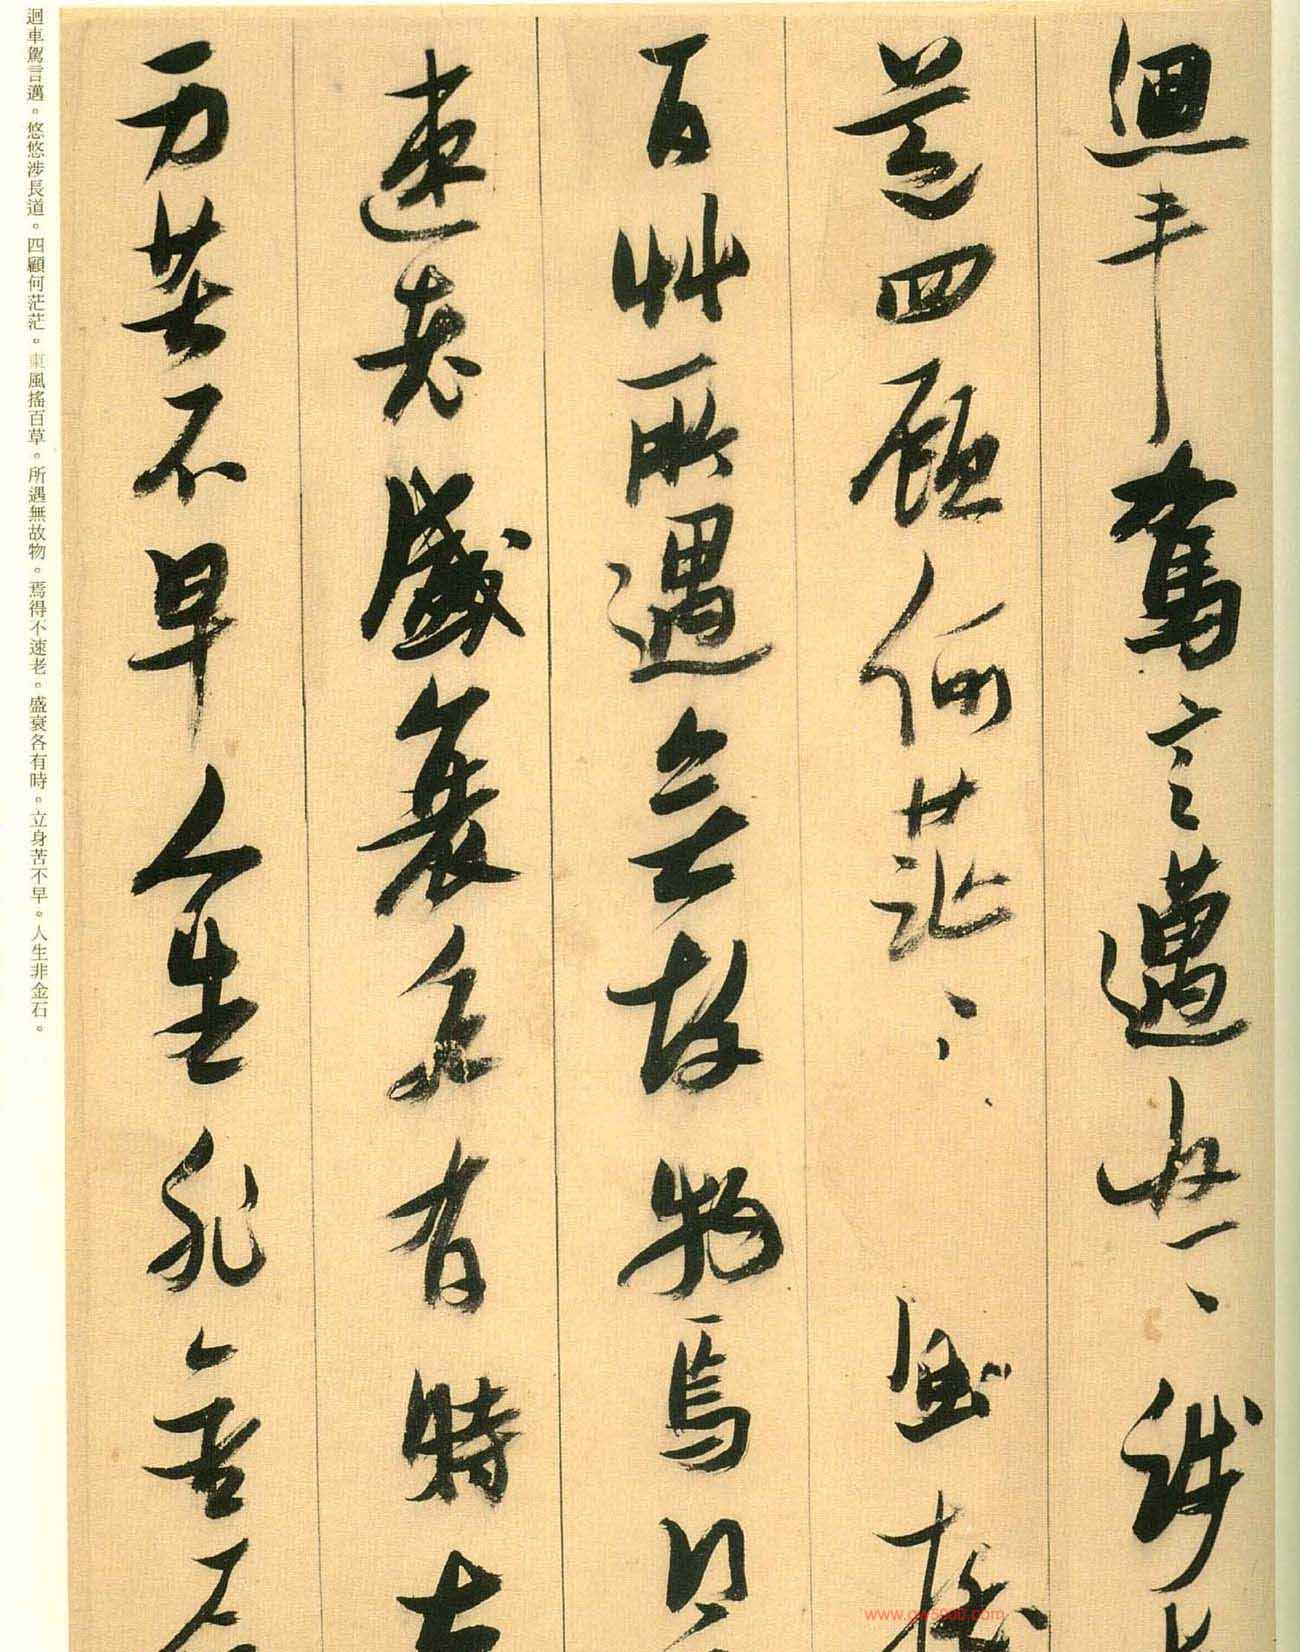 迴車駕言邁悠〻涉
道四顧何茫〻風搖
百艸所遇無故物焉得
速老盛衰各有時立
身苦不早人生非金石
迴車駕言邁。悠悠涉長道。四顧何茫茫。東風搖百草。所遇無故物。焉得不速老。盛衰各有時。立身苦不早。人生非金石。